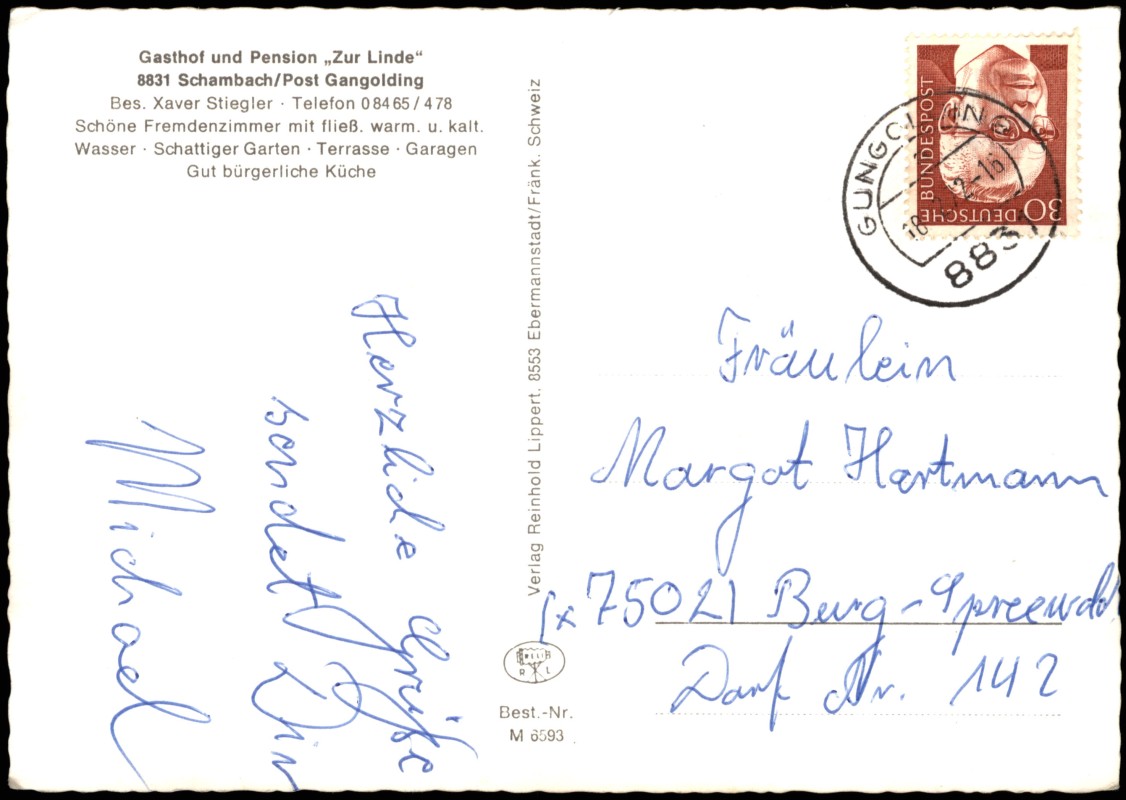 Gasthof und Pension „Zur Linde“
8831 Schambach/Post Gangolding
Bes. Xaver Stiegler · Telefon 08465/478
Schöne Fremdenzimmer mit fließ. warm. u. kalt.
Wasser · Schattiger Garten · Terrasse · Garagen
Gut bürgerliche Küche
Herzliche Grüße
sendet Dir
Michael
Verlag Reinhold Lippert, 8553 Ebermannstadt/Fränk. Schweiz
Best.-Nr.
M 6593
DEUTSCHE BUNDESPOST
30
GUNGOLDING
8831
Fräulein
Margot Hartmann
x 75021 Burg-Spreewald
Dorf Nr. 142